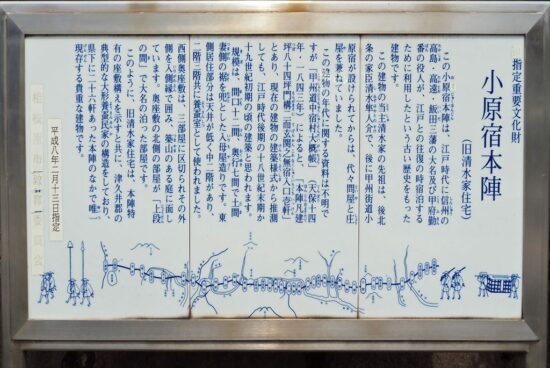 指定重要文化財
小原宿本陣
(旧清水家住宅)
この小原宿本陣は、江戸時代に信州の
高島・高遠・飯田三藩の大名及び甲府勤
番の役人が、江戸との往復の時宿泊する
ために利用したという古い歴史をもった
建物です。
この建物の当主清水家の先祖は、後北
条の家臣清水隼人介で、後に甲州街道小
原宿が設けられてからは、代々問屋と庄
屋を兼ねていました。
この建物の年代に関する資料は不明で
すが「甲州道中宿村大概帳」(天保十四
年・一八四三年)によると、「本陣凡建
坪八十四坪門構ニ而玄関之無宿入口壱軒」
とあり、現在の建物の建築様式から推測
しても、江戸時代後期の十八世紀末期か
十九世紀初期の頃の建築と思われます。
規模は、間口十二間、奥行七間で土間
妻側の裾を兜とした入母屋造りです。東
側居住部分は天井が低い中二階があり、
二階三階共に養蚕室として使われました。
西側奥座敷は、三部屋に区切りその外
側を入側縁で囲み、築山のある庭に面し
ています。奥座敷の北側の部屋が「上段
の間」で大名の泊った部屋です。
このように、旧清水家住宅は、本陣特
有の座敷構えを示すと共に、津久井郡の
典型的な大形養蚕民家の構造をしており、
県下に二十六軒あった本陣のなかで唯一
現存する貴重な建物です。
平成八年二月十三日指定
相模原市教育委員会